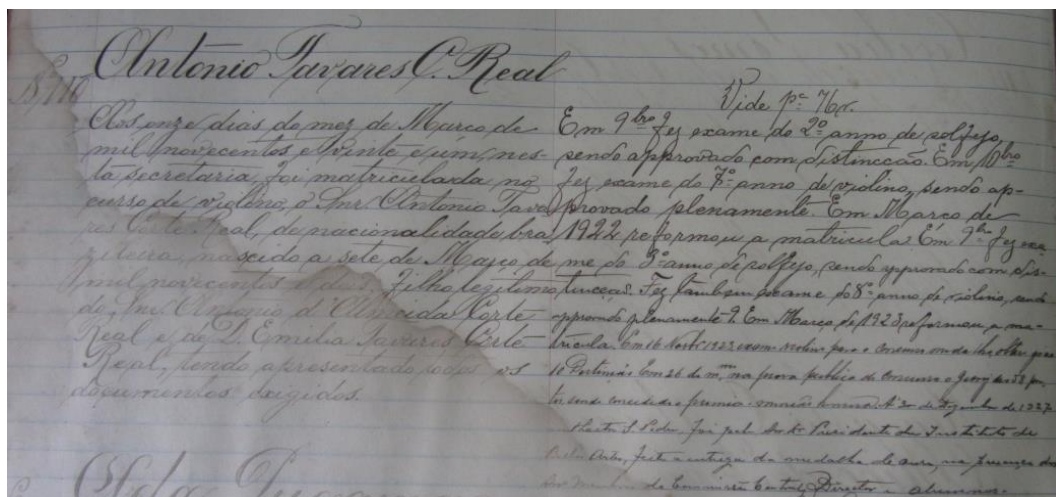 Antonio Tavares C. Real
Nº 110
Aos onze dias do mez de Março de
mil novecentos e vinte e um, nes-
ta secretaria, foi matriculado no
curso de violino, o Snr. Antonio Tava
res Corte Real, de nacionalidade bra
zileira, nascido a sete de Março de
mil novecentos e Filho legitimo
do Snr. Antonio d'Almeida Corte
Real e de D. Emilia Tavares Corte
Real, tendo apresentado todos os
documentos exigidos.
Vide pº 76
Em 9bro fez exame do 2º anno de solfejo,
sendo approvado com distincção. Em 10bro
fez exame do 7º anno de violino, sendo ap-
provado plenamente. Em Março de
1922 reformou a matricula. Em 9bro fez exa
me do 3º anno de solfejo, sendo approvado com dis-
tincção. Fez tambem exame do 8º anno de violino, sendo
approvado plenamente 9. Em Março de 1923 reformou a ma-
tricula. Em 16 Novbr 1923 exam. violino para o concurso medalha
Em 26 do m.mo na prova publica de concurso
sendo concedido o premio de Dezembro de 1927
Theatro S. Pedro, foi pelo Presidente do Instituto de
Bellas Artes, feita a entrega da medalha de ouro, na presença dos
Commissão Central, Director e alumnos.